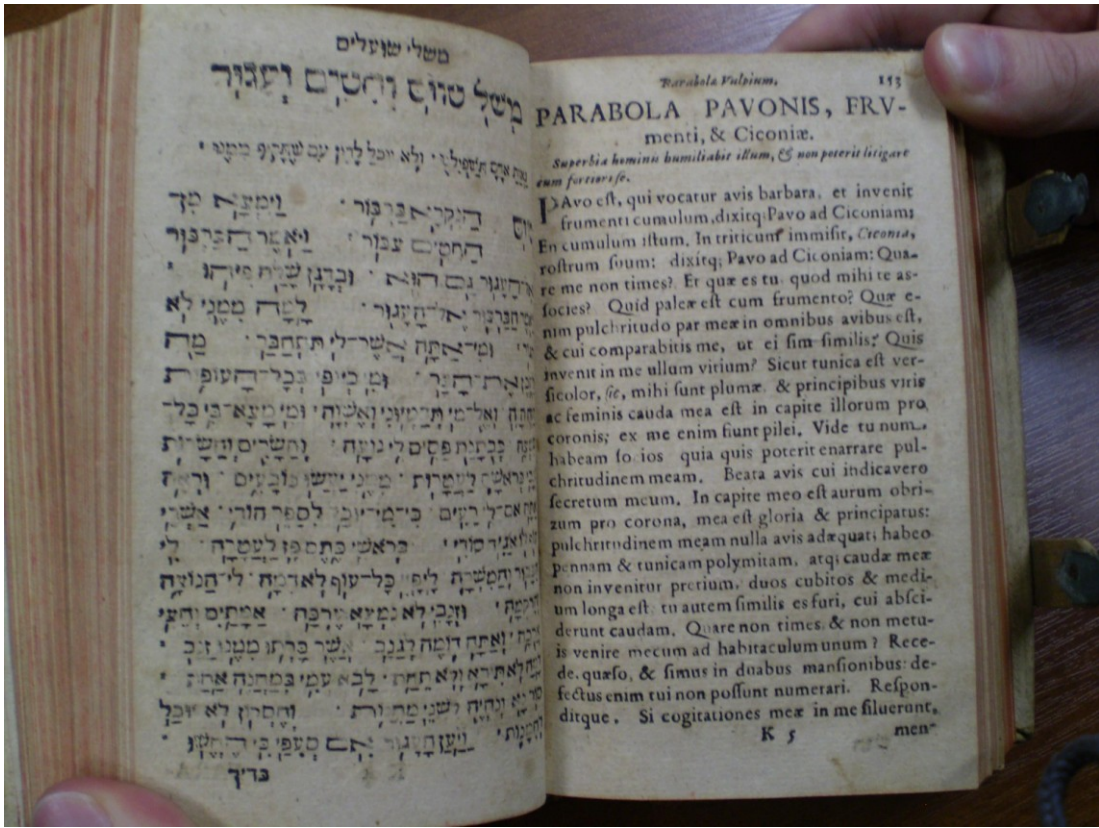 משלי שועלים
משל טווס וחטים ועגור
ולא יוכל לדין עם
הנקרא ברבור וימצא
החטים צבור ויאמר הברבור
העגור גם הוא ובדגן שלח פיהו
הברבור אל העגור למה ממני לא
ומי אתה אשר לי תתחבר מה
את הבר ומי כיפי בכל העופות
ואל מי תדמיוני ואשוה ומי מצא בי כל
ככתנת פסים לי נוצה והשרים והשרות
לעטרות ממני יעשו כובעים וראה
אם לי רעים כי מי יוכל לספר הודי אשרי
אגיד סודי בראשי כתם פז לעטרה לי
כל עוף לא דמה לי הנוצה
וזנבי לא נמצא ערכה אמתים וחצי
ואתה דומה לגנב אשר כרתו ממנו זנב
לא תירא ולא תחת לבא עמי במחנה אחת
ונהיה לשני מחנות וחסרון לא יוכל
להמנות ויען העגור אם סעפי בי החשו
בדיך
Parabola Vulpium, 153
PARABOLA PAVONIS, FRV-
menti, & Ciconiæ.
Superbia hominis humiliabit illum, & non poterit litigare
cum fortiore se.
PAvo est, qui vocatur avis barbara, et invenit
frumenti cumulum, dixitq; Pavo ad Ciconiam;
En cumulum istum. In triticum immisit, Ciconia,
rostrum suum: dixitq; Pavo ad Ciconiam: Qua-
re me non times? Et quæ es tu quod mihi te as-
socies? Quid paleæ est cum frumento? Quæ e-
nim pulchritudo par meæ in omnibus avibus est,
& cui comparabitis me, ut ei sim similis? Quis
invenit in me ullum vitium? Sicut tunica est ver-
sicolor, sic, mihi sunt plumæ, & principibus viris
ac feminis cauda mea est in capite illorum pro
coronis; ex me enim fiunt pilei. Vide tu num
habeam socios quia quis poterit enarrare pul-
chritudinem meam. Beata avis cui indicavero
secretum meum. In capite meo est aurum obri-
zum pro corona, mea est gloria & principatus:
pulchritudinem meam nulla avis adæquat: habeo
pennam & tunicam polymitam, atq; caudæ meæ
non invenitur pretium, duos cubitos & medi-
um longa est. tu autem similis es furi, cui absci-
derunt caudam. Quare non times, & non metu-
is venire mecum ad habitaculum unum? Rece-
de, quæso, & simus in duabus mansionibus: de-
fectus enim tui non possunt numerari. Respon-
ditque. Si cogitationes meæ in me siluerunt,
K 5 men-